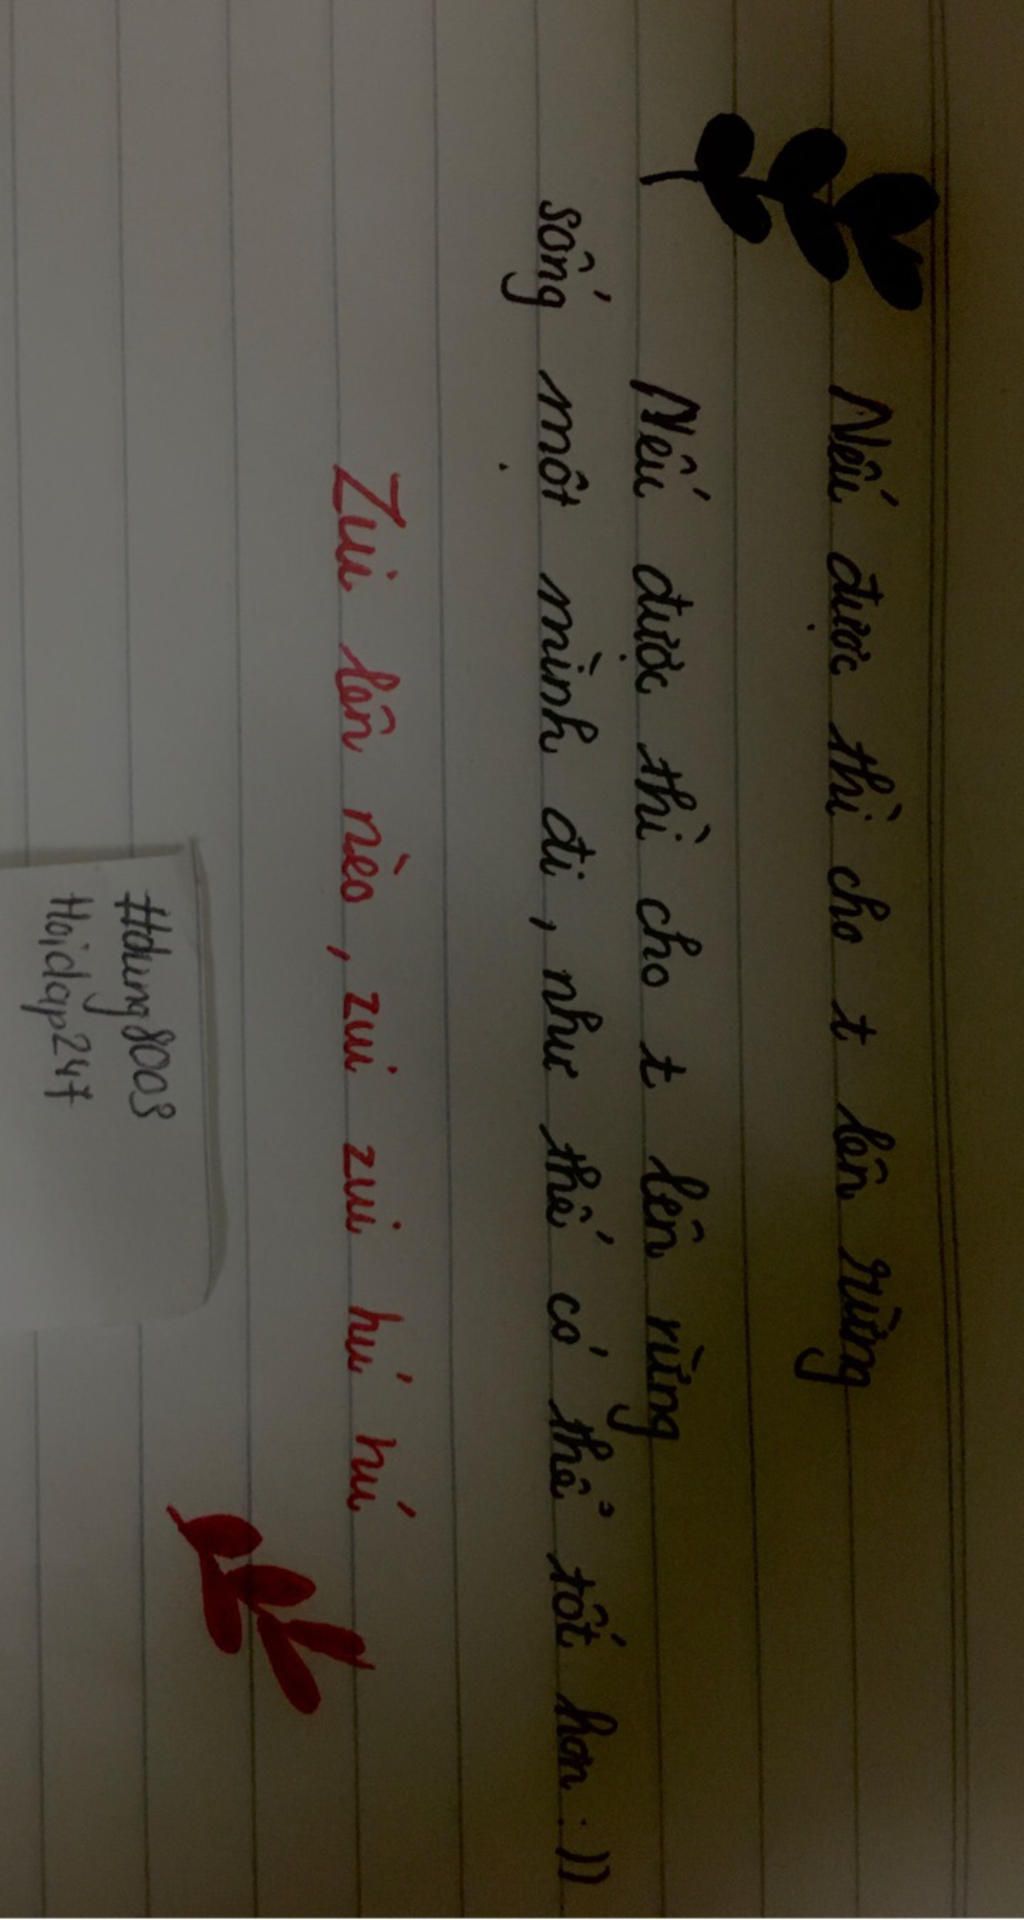 Nếu được thì cho t lên rừng
Nếu được thì cho t lên rừng
sống một mình đi, như thế có thể tốt hơn :))
Zui lên nèo, zui zui hú hú
#dung8003
Hoidap247